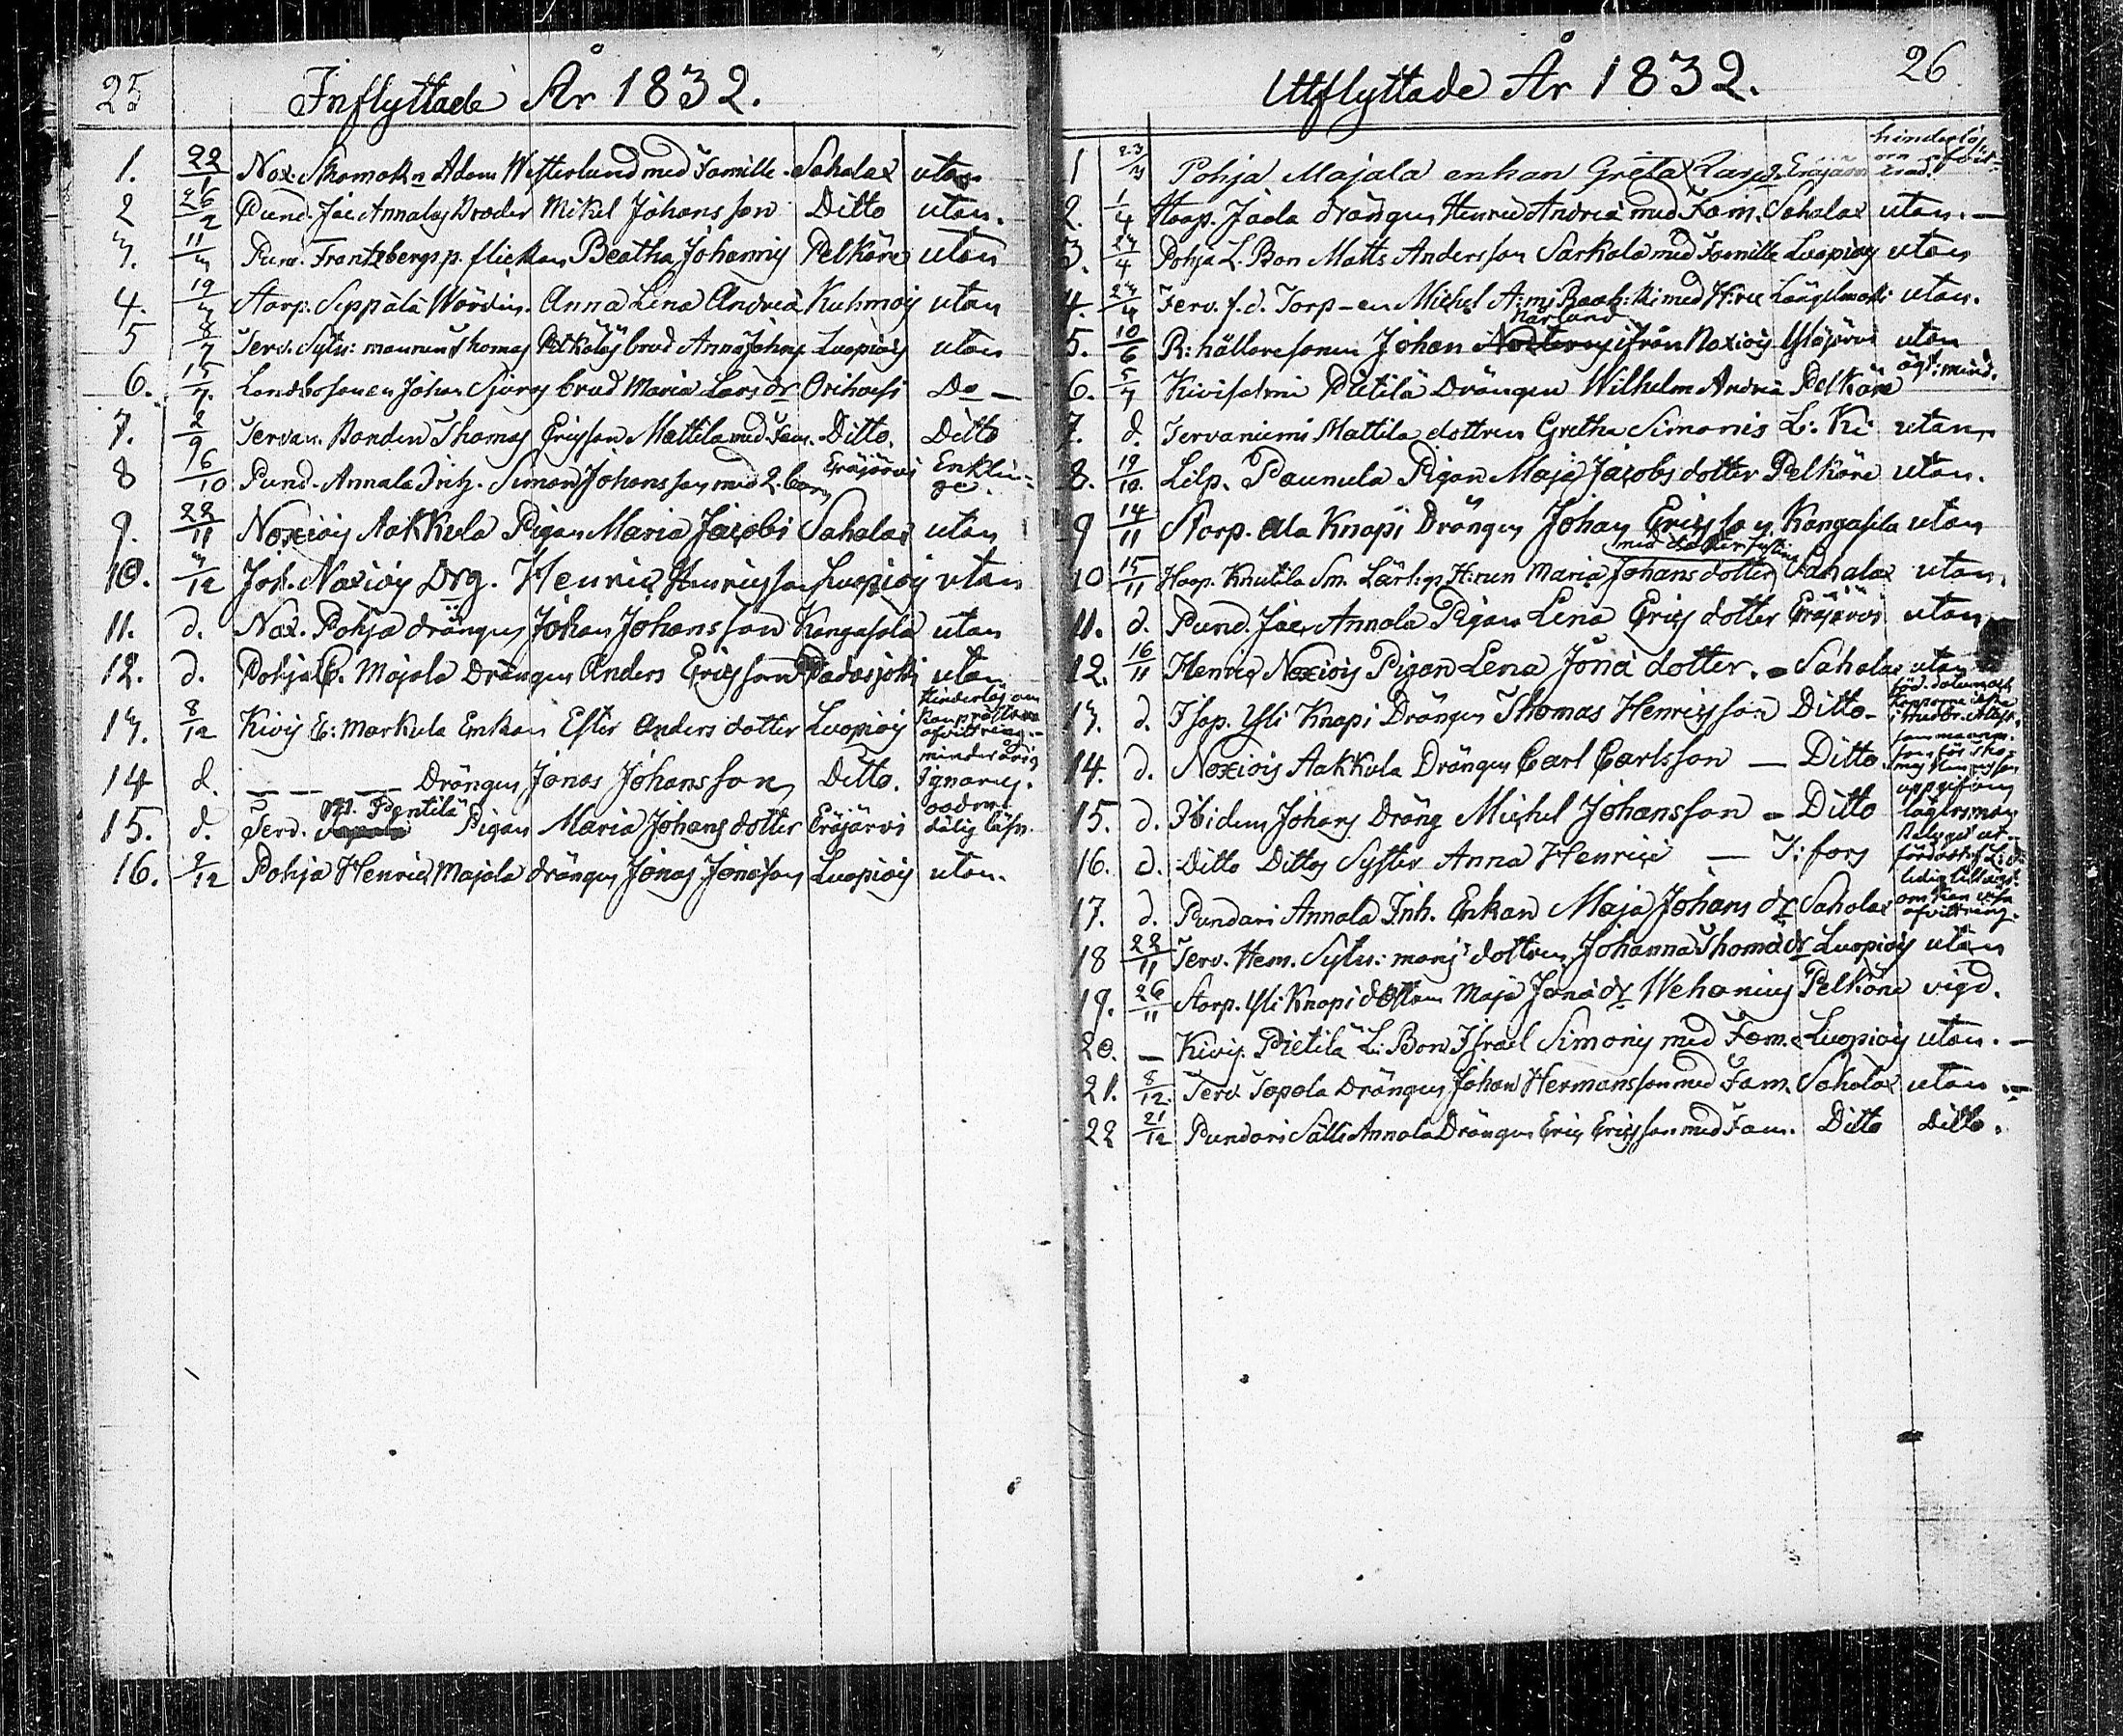 25
Inflyttade År 1832.
1. 22/1 Nox. Skomak:n Adam Westerlund med Famille Sahalax utan.
2 26/2 Pund. Jac Annalas Broder Mikel Johansson Ditto utan.
3. 11/3 Pund. Frantzbergs p. flickan Beatha Johannis Pelkäne utan
4. 19/3 Storp. Seppälä Wärdin. Anna Lena Andreä Kuhmois utan
5 8/7 Terv. Sytn: mannens Thomas brud Anna Johans Luopiois utan
6. 15/7. Landbosonen Johan brud Maria Larsdr Orihvesi Do —
7. 2/9 Tervan. Bonden Thomas Ericsson Mattila med Fam. Ditto. Ditto
8 16/10 Pund. Annala Inh. Simon Johansson med 2. barn Eräjärvi Enklin=
ge.
9. 22/11 Noxiois Aakkula Pigan Maria Jacobi Sahalax utan
10. 3/12 Joh. Noxiois Drg. Henric Henricsson Luopiois utan
11. d. Nox. Pohja drängen Johan Johansson Kangasala utan
12. d. Pohja E. Majala Drängen Anders Ericsson Padasjoki utan
hinderlös om
afvittring.
13. 8/12 Kivis E: Markula Enkan Ester Anders dotter Luopiois
minderårig
14 d. — — — Drängen Jonas Johansson Ditto. Ignarus.
Pentilä
15. d. Terv. Pigan Maria Johans dotter Eräjärvi dålig läsn.
16. 9/12 Pohja Henric Majala drängen Jonas Jonasson Luopiois utan.
26
Utflyttade År 1832.
hinderlös
om afvit=
1 23/3 Pohja Majala enkan Greta Larsd. Eräjärvi trad.
2. 1/4 Haap. Jaala drängen Henric Andreä med Fam. Sahalax utan. —
3. 23/4 Pohja L. Bon Matts Andersson Sarkola med Famille Luopiois utan
4. 23/4 Terv. f.d. Torp-en Michel med H:ru Längelmäki utan.
Närlund
5. 10/6 R: hållaresonen Johan ifrån Noxiois Ylöjärvi utan
6. 5/7 Kivisalmi Pietilä Drängen Wilhelm Andreä Pelkäne ägt: mind.
7. d. Tervaniemi Mattila dottren Gretha Simonis L: Ki utan.
8. 19/10. Lilp. Paunula Pigan Maja Jacobs dotter Pelkäne utan.
9 14/11 Storp. Ala Knapi Drängen Johan Ericsson Kangasala utan
med dotter
10 15/11 Haap. Knutila Sm. Lärl:gs H:run Maria Johans dotter Sahalax utan.
11. d. Pund. Jac Annala Pigan Lena Erics dotter Eräjärvi utan
12. 16/11 Henric Noxiois Pigan Lena Jona dotter. — Sahalax utan
13. d. Isop. Yli Knapi Drängen Thomas Henricsson Ditto-
14. d. Noxiois Aakkula Drängen Carl Carlsson — Ditto
15. d. Ibidem Johans Dräng Michel Johansson — Ditto
16. d. Ditto Dittos Syster Anna Henrici — T: fors
17. d. Pundari Annala Inh. Enkan Maja Johans dr Sahalax
afvittring.
18 22/11 Terv. Hem. Sytn: mans dottren Johanna Thomä dr Luopiois utan
19. 26/11 Storp. Yli Knapi dottren Maja Jonä dr Wehanius Pelkäne vigd.
20. — Kivis. Pietilä L: Bon Israel Simonis med Fam. Luopiois utan. —
21. 8/12. Terv. Tapola Drängen Johan Hermansson med Fam. Sahalax utan. —
22 21/12 Pundari Sälli Annala Drängen Eric Ericsson med Fam. Ditto Ditto.